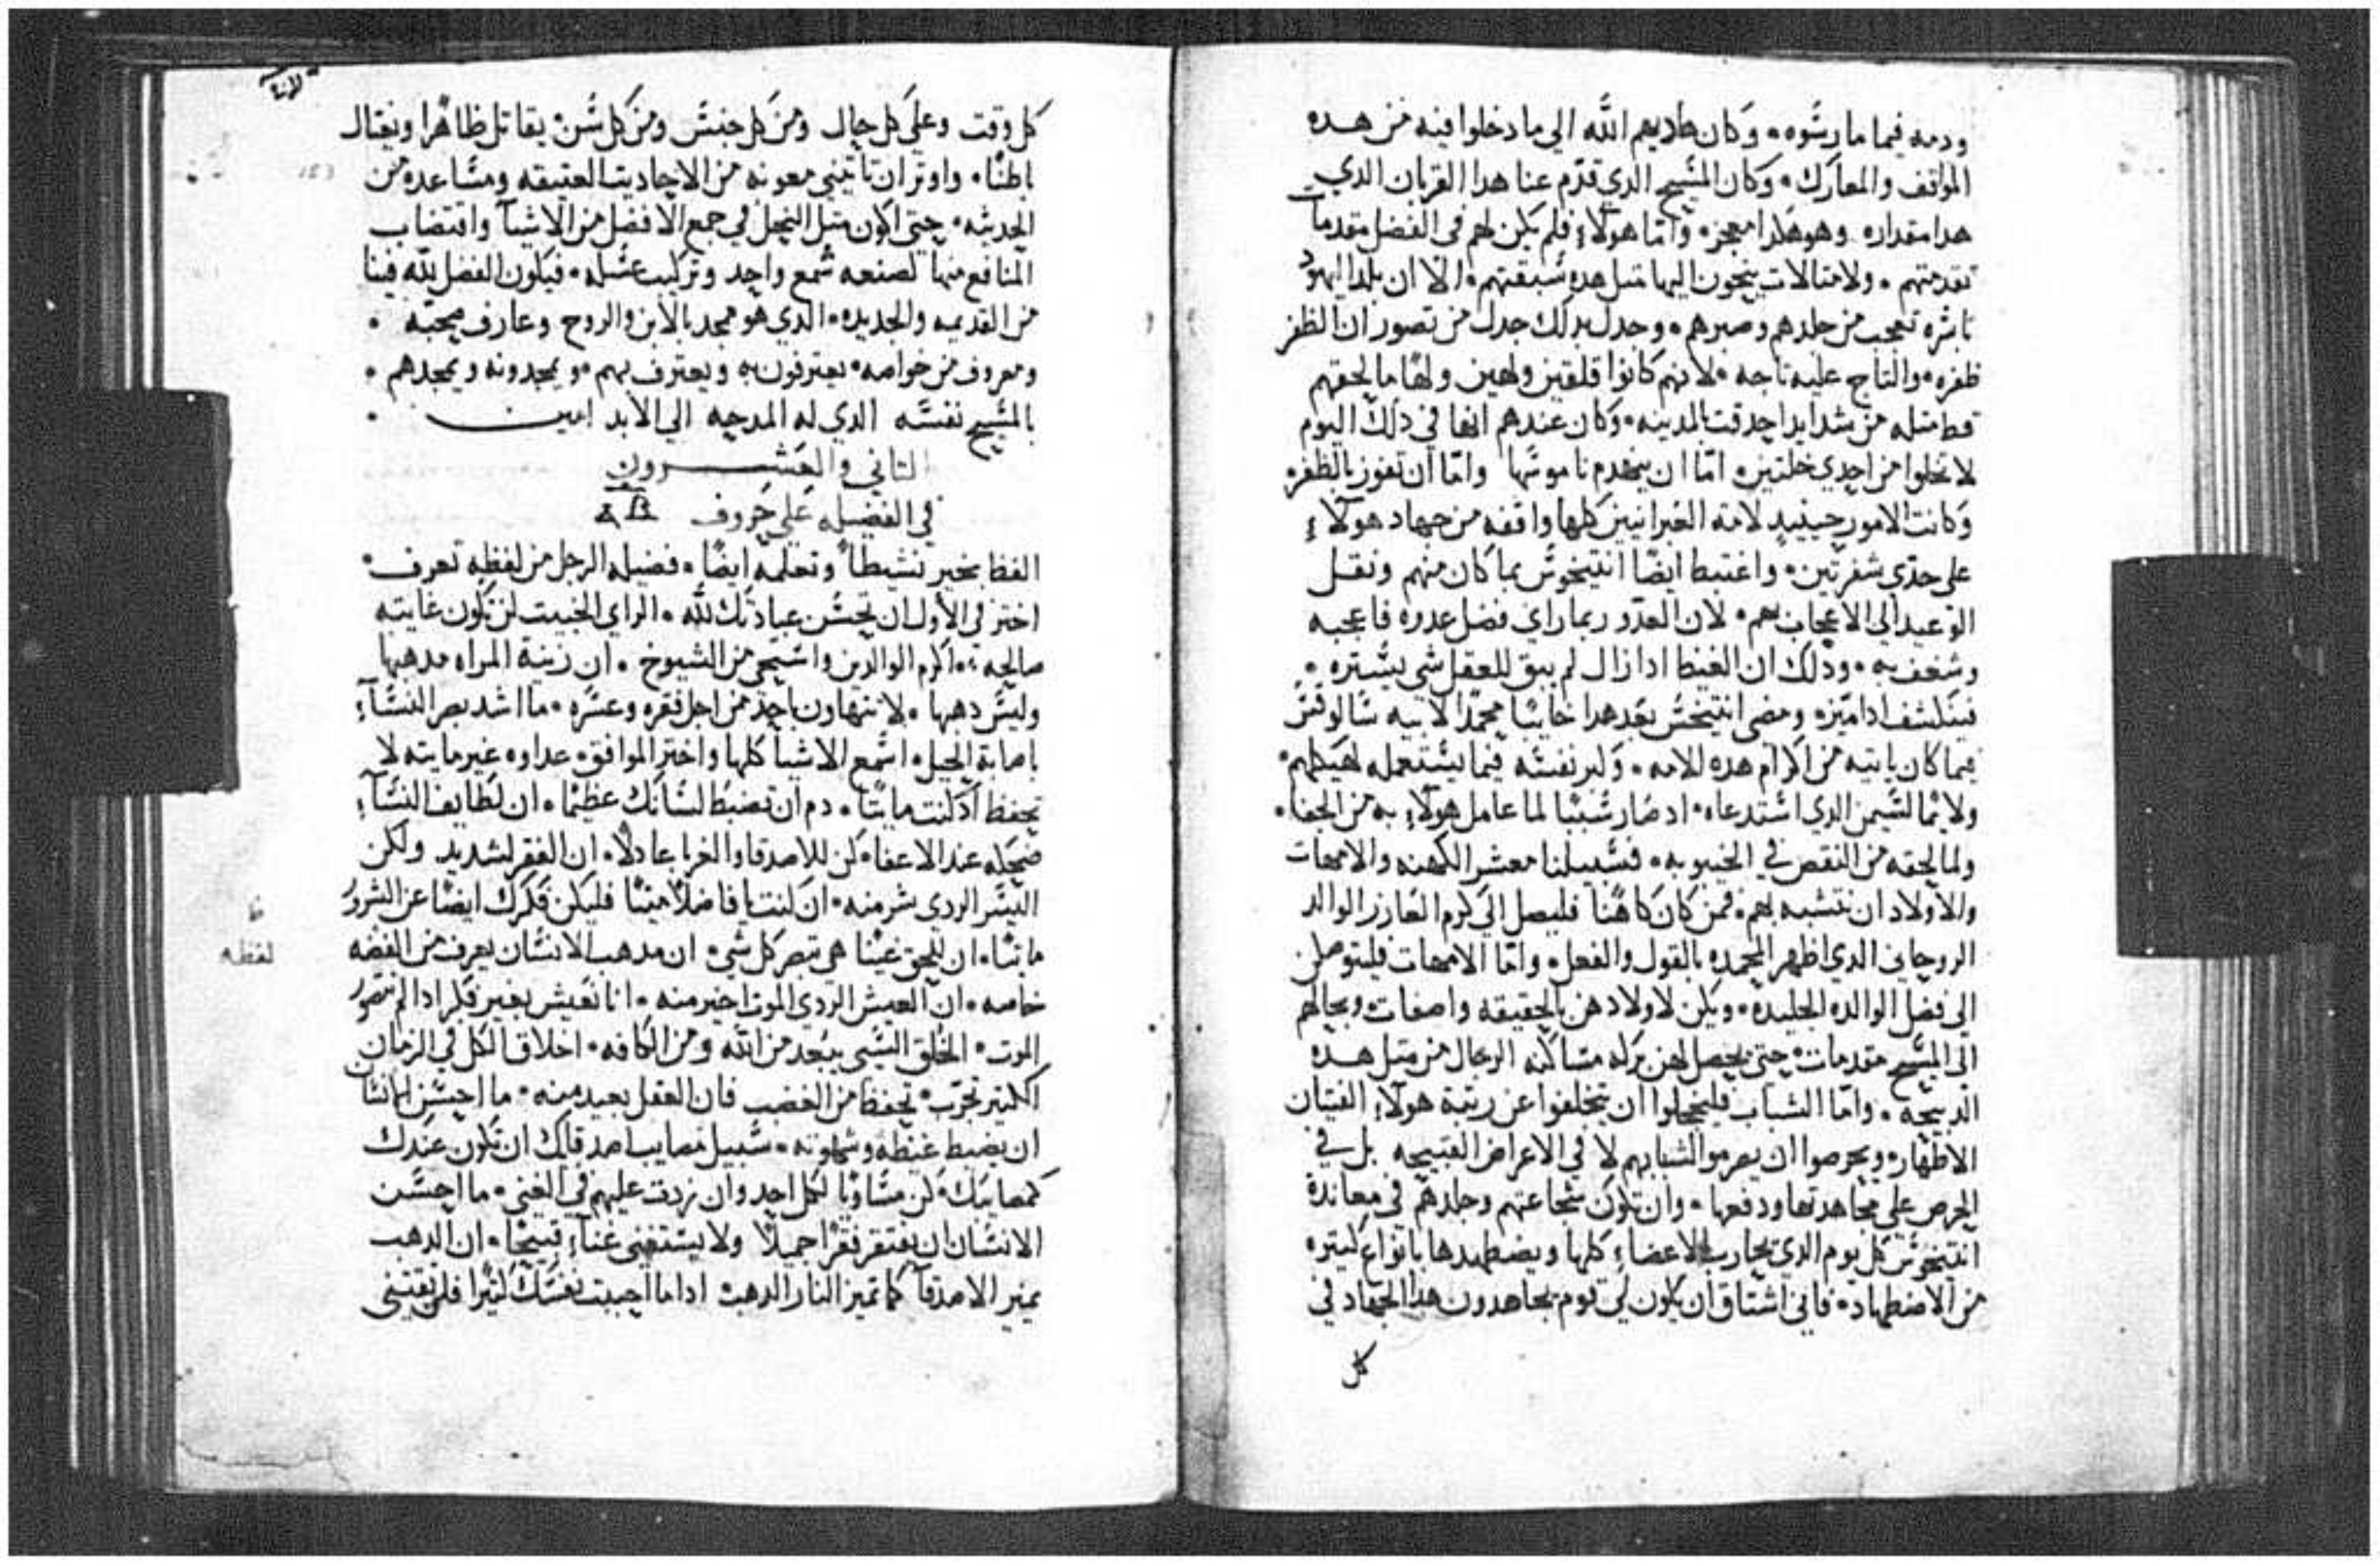 ودمه فيما مارسوه وكان هاديهم الله الي ما دخلوا فيه من هده
المواقف والمعارك وكان المسيح الدي قدم عنا هدا القربان الدي
هدا مقداره وهو هكدا معجز واما هولاء فلم يكن لهم في الفضل مقدمات
تقدمتهم ولا مثالات ينحون اليها مثل هده سبقتهم الا ان بلد اليهود
باسره تعجب من جلدهم وصبرهم وجدل بدلك جدل من تصور ان الظفر
ظفره والتاج عليه تاجه لانهم كانوا قلقين ولهين ولها ما لحقهم
قط مثله من شدايد احدقت بالمدينه وكان عندهم انها في دلك اليوم
لا تخلوا من احدي خلتين اما ان ينهدم ناموسها واما ان تفوز بالظفر
وكانت الامور حينيد لامه العبرانيين كلها واقفه من جهاد هولاء
علي حدي شفرتين واغتبط ايضا انتيخوس بما كان منهم ونقل
الوعيد الي الاعجاب بهم لان العدو ربما راي فضل عدوه فاعجبه
وشغف به ودلك ان الغيظ ادا زال لم يبق للعقل شي يستره
فينكشف ادا ميزه ومضي انتيخس بعد هدا خايبا محمدا لابيه سالوقس
فيما كان ياتيه من اكرام هده الامه
ولايما لسيمن الدي استدعاه اد صار سببا لما عامل هولاء به من الجفا
ولما لحقه من النقص في الخيبوبه فسبيلنا معشر الكهنه والامهات
والاولاد ان نتشبه بهم فمن كان كاهنا فليصل الي كرم العازر الوالد
الروحاني الدي اظهر المحمده بالقول والفعل واما الامهات فليتوصلن
الي فضل الوالده الجليده ويكن لاولادهن بالحقيقه واصفات وبحالهم
الي المسيح مقدمات حتي يحصل لهن بركه مشاكله الرجال من مثل هده
الدبيحه واما الشباب فليخجلوا ان يتخلفوا عن رتبة هولاء الفتيان
الاطهار ويحرصوا ان يصرموا شبابهم لا في الاعراض القبيحه بل في
الحرص علي مجاهدتها ودفعها وان تكون شجاعتهم وجلدهم في معاندة
انتيخوس كل يوم الدي يحارب بالاعضاء كلها ويضطهدها بانواع كثيره
من الاضطهاد فاني اشتاق ان يكون لي قوم يجاهدون هدا الجهاد في
كل
كل وقت وعلي كل حال ومن كل جنس ومن كل سن يقاتل ظاهرا ويغتال
باطنا واوثر ان تاتيني معونه من الاحاديث العتيقه ومساعده من
الحديثه حتي اكون مثل النحل في جمع الافضل من الاشيا واقتضاب
المنافع منها لصنعه شمع واحد وتركيب عسله فيكون الفضل لله فينا
من القديمه والجديده الدي هو ممجد بالابن والروح وعارف محبه
ومعروف من خواصه يعترفون به ويعترف بهم ويمجدونه ويمجدهم
بالمسيح نفسه الدي له المدحيه الي الابد امين
الثاني والعشرون
في الفضيله علي حروف
الفظ بخير نشيطا وتعلمه ايضا فضيله الرجل من لفظه تعرف
اختر في الاول ان تحسن عبادتك لله الراي الخبيث لن تكون غايته
صالحه اكرم الوالدين واستحي من الشيوخ ان زينة المراه مدهبها
وليس دهبها لا تتهاون باحد من اجل فقره وعسره ما اشد بصر النساء
باصابة الحيل اسمع الاشيا كلها واختر الموافق عداوه غير مايته لا
تحفظ اد كنت مايتا دم ان تضبط لسانك عظيما ان لطايف النساء
ضحكه عند الاعفا كن للاصدقا والغربا عادلا ان الفقر لشديد ولكن
اليسر الردي شر منه ان كنت يا فاضلا ميتا فليكن فكرك ايضا عن الشرور
مايتا ان للحق عينا هي تبصر كل شي ان مدهب الانسان يعرف من الفضه
لفظه
خاصه ان العيش الردي الموت اخير منه انا نعيش بغير فكر ادا لم نتصور
الموت الخلق السي يبعد من الله ومن الكافه اخلاق الكل في الزمان
الكثير تجرب تحفظ من الغضب فان العقل بعيد منه ما احسن انسانا
ان يضبط غيظه وشهوته سبيل مصايب اصدقاك ان تكون عندك
كمصايبك كن مساويا لكل احد وان زدت عليهم في الغني ما احسن
الانسان ان يفتقر فقرا جميلا ولا يستغني غناء قبيحا ان الدهب
يميز الاصدقا كما تميز النار الدهب ادا ما احببت نفسك كثيرا فلن تقتني